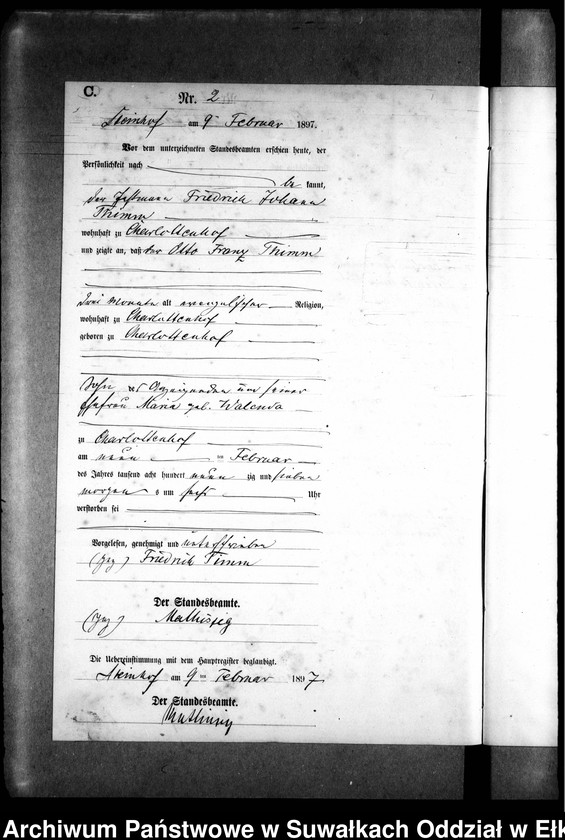 C.
Nr. 2
Steinhof am 9ten Februar 1897.
Vor dem unterzeichneten Standesbeamten erschien heute, der
Persönlichkeit nach
be kannt,
der Friedrich Johann
Thimm
wohnhaft zu Charlottenhof
und zeigte an, daß der Otto Franz Thimm
drei Monate alt evangelischer Religion,
wohnhaft zu Charlottenhof
geboren zu Charlottenhof
Sohn des Anzeigenden und seiner
Ehefrau Maria geb. Walenda
zu Charlottenhof
am neun ten Februar
des Jahres tausend acht hundert neun zig und sieben
morgens um sechs Uhr
verstorben sei
Vorgelesen, genehmigt und unterschrieben
(gez) Friedrich Timm
Der Standesbeamte.
(gez)
Die Uebereinstimmung mit dem Hauptregister beglaubigt.
Steinhof am 9ten Februar 1897
Der Standesbeamte.
Archiwum Państwowe w Suwałkach Oddział w Ełk